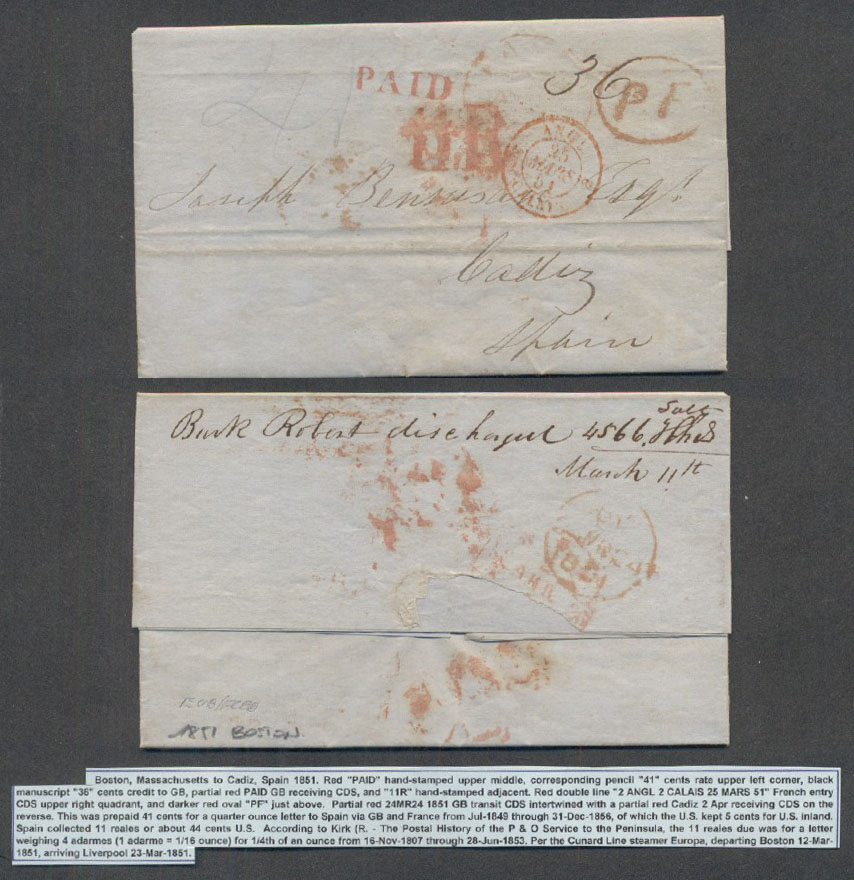 41
PAID
36
PF
11R
ANGL
25
MARS
51
Joseph Esqr.
Cadiz
Spain
Bark Robert discharged 4566
March 11th
MR24
1851
1851 BOSTON
Boston, Massachusetts to Cadiz, Spain 1851. Red "PAID" hand-stamped upper middle, corresponding pencil "41" cents rate upper left corner, black
manuscript "36" cents credit to GB, partial red PAID GB receiving CDS, and "11R" hand-stamped adjacent. Red double line "2 ANGL 2 CALAIS 25 MARS 51" French entry
CDS upper right quadrant, and darker red oval "PF" just above. Partial red 24MR24 1851 GB transit CDS intertwined with a partial red Cadiz 2 Apr receiving CDS on the
reverse. This was prepaid 41 cents for a quarter ounce letter to Spain via GB and France from Jul-1849 through 31-Dec-1856, of which the U.S. kept 5 cents for U.S. inland.
Spain collected 11 reales or about 44 cents U.S. According to Kirk (R. - The Postal History of the P & O Service to the Peninsula, the 11 reales due was for a letter
weighing 4 adarmes (1 adarme = 1/16 ounce) for 1/4th of an ounce from 16-Nov-1807 through 28-Jun-1853. Per the Cunard Line steamer Europa, departing Boston 12-Mar-
1851, arriving Liverpool 23-Mar-1851.